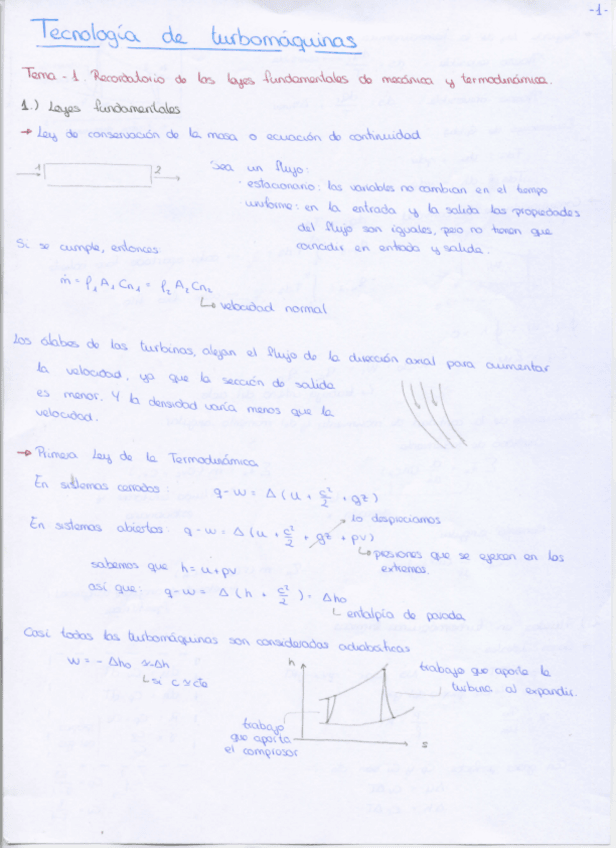 -1-
Tecnología de turbomáquinas
Tema-1. Recordatorio de las leyes fundamentales de mecánica y termodinámica.
1.) Leyes fundamentales
→ Ley de conservación de la masa o ecuación de continuidad
1 2
Sea un flujo:
· estacionario: las variables no cambian en el tiempo
· uniforme: en la entrada y la salida las propiedades
del flujo son iguales, pero no tienen que
coincidir en entrada y salida.
Si se cumple, entonces:
ṁ = ρ₁ A₁ Cn₁ = ρ₂ A₂ Cn₂
↳ velocidad normal
Los álabes de las turbinas, alejan el flujo de la dirección axial para aumentar
la velocidad, ya que la sección de salida
es menor. Y la densidad varía menos que la
velocidad.
→ Primera Ley de la Termodinámica
En sistemas cerrados: q-w = Δ(u + c²/2 + gz)
→ lo despreciamos
En sistemas abiertos: q-w = Δ(u + c²/2 + gz + pv)
↳ presiones que se ejercen en los
extremos.
sabemos que h = u+pv
así que: q-w = Δ(h + c²/2) = Δh₀
↳ entalpía de parada
Casi todas las turbomáquinas son consideradas adiabáticas
w = -Δh₀ ≈ Δh
↳ si c ≈ cte
h
trabajo que aporta la
turbina al expandir.
trabajo
que aporta
el compresor
s